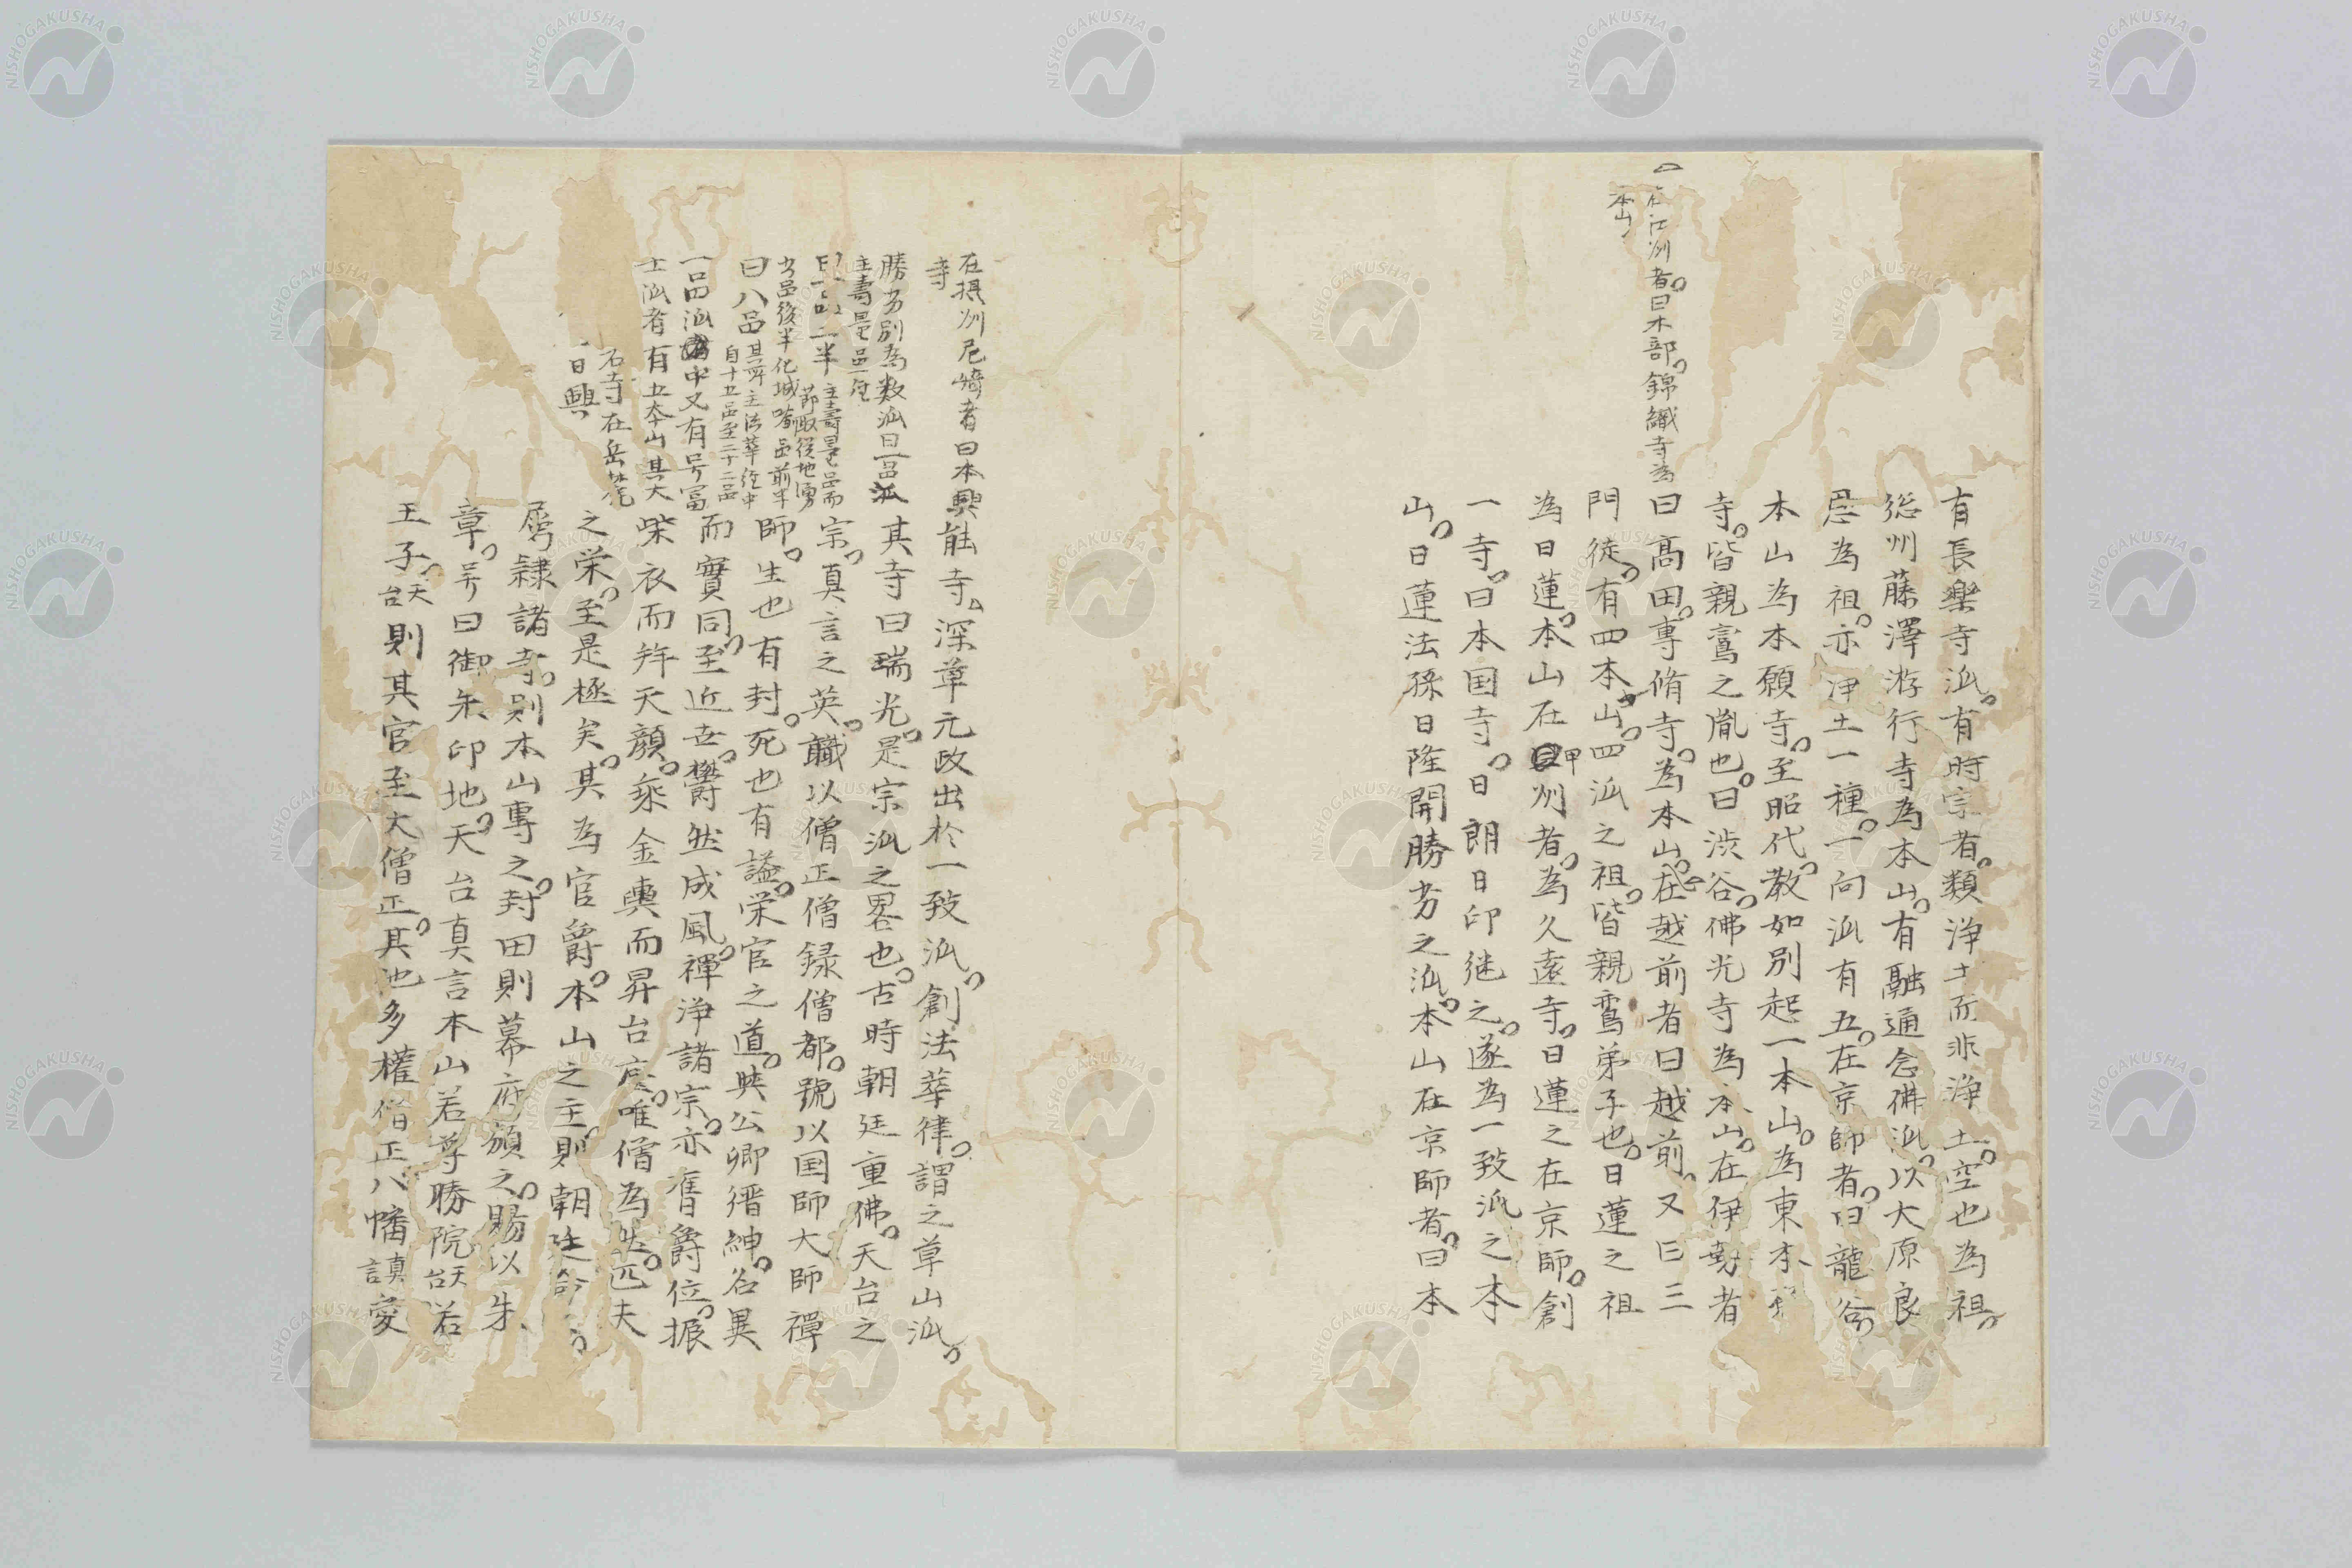 有長樂寺派。有時宗者。類浄土而非浄土。空也為祖。
総州藤澤游行寺為本山。有融通念佛派。以大原良
忍為祖。亦浄土一種。一向派有五。在京師者。曰龍谷。
本山為本願寺。至昭代。教如別起一本山。為東本
寺。皆親鸞之胤也。曰渋谷。佛光寺為本山。在伊勢者
曰髙田。専脩寺。為本山。在越前者曰越前。又曰三
門徒。有四本山。四派之祖。皆親鸞弟子也。日蓮之祖
為日蓮。本山在甲州者。為久遠寺。日蓮之在京師。創
一寺。曰本国寺。日朗日印継之。遂為一致派之本
山。日蓮法孫日隆開勝劣之派。本山在京師者。曰本
在江州者。曰木部。錦織寺為
本山
能寺。深草元政出於一致派。創法華律。謂之草山派。
其寺曰瑞光。是宗派之畧也。古時朝廷重佛。天台之
宗。真言之英。職以僧正僧録僧都。號以国師大師禪
師。生也有封。死也有諡。栄官之道。映公卿縉紳。名異
而實同。至近世。欝然成風。禪浄諸宗。亦奮爵位。振
柴衣而拜天顔。乗金輿而昇台府。唯僧為然。匹夫
之栄。至是極矣。其為官爵。本山之主。則朝廷命。
屬隷諸寺。則本山専之。封田則幕府頒之。賜以朱
章。号曰御朱印地。天台真言本山若尊勝院天台若
王子。天台則其官至大僧正。其他多權僧正。八幡真言愛
在摂州尼崎者曰本興
寺
勝劣別為数派曰一品派
主壽量品一卷
曰一品二半主壽量品而
節取従地湧
出品後半化城喩品前半
曰八品其所主法華経中
自十五品至二十二品
一品派中又有号冨
士派者有五本山其大
石寺在岳麓
曰興